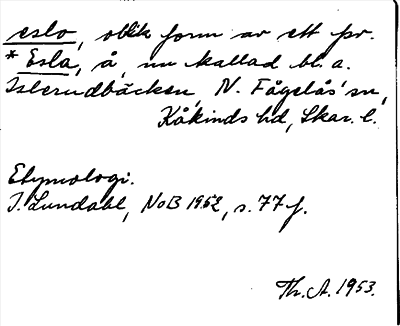 eslo, oblik form av ett fsv.
* Esla, å, nu kallad bl. a.
Islerudbäcken, N. Fågelås sn,
Kåkinds hd, Skar. l.
Etymologi.
I. Lundahl, NoB 1952, s. 77 f.
Th. A. 1953.